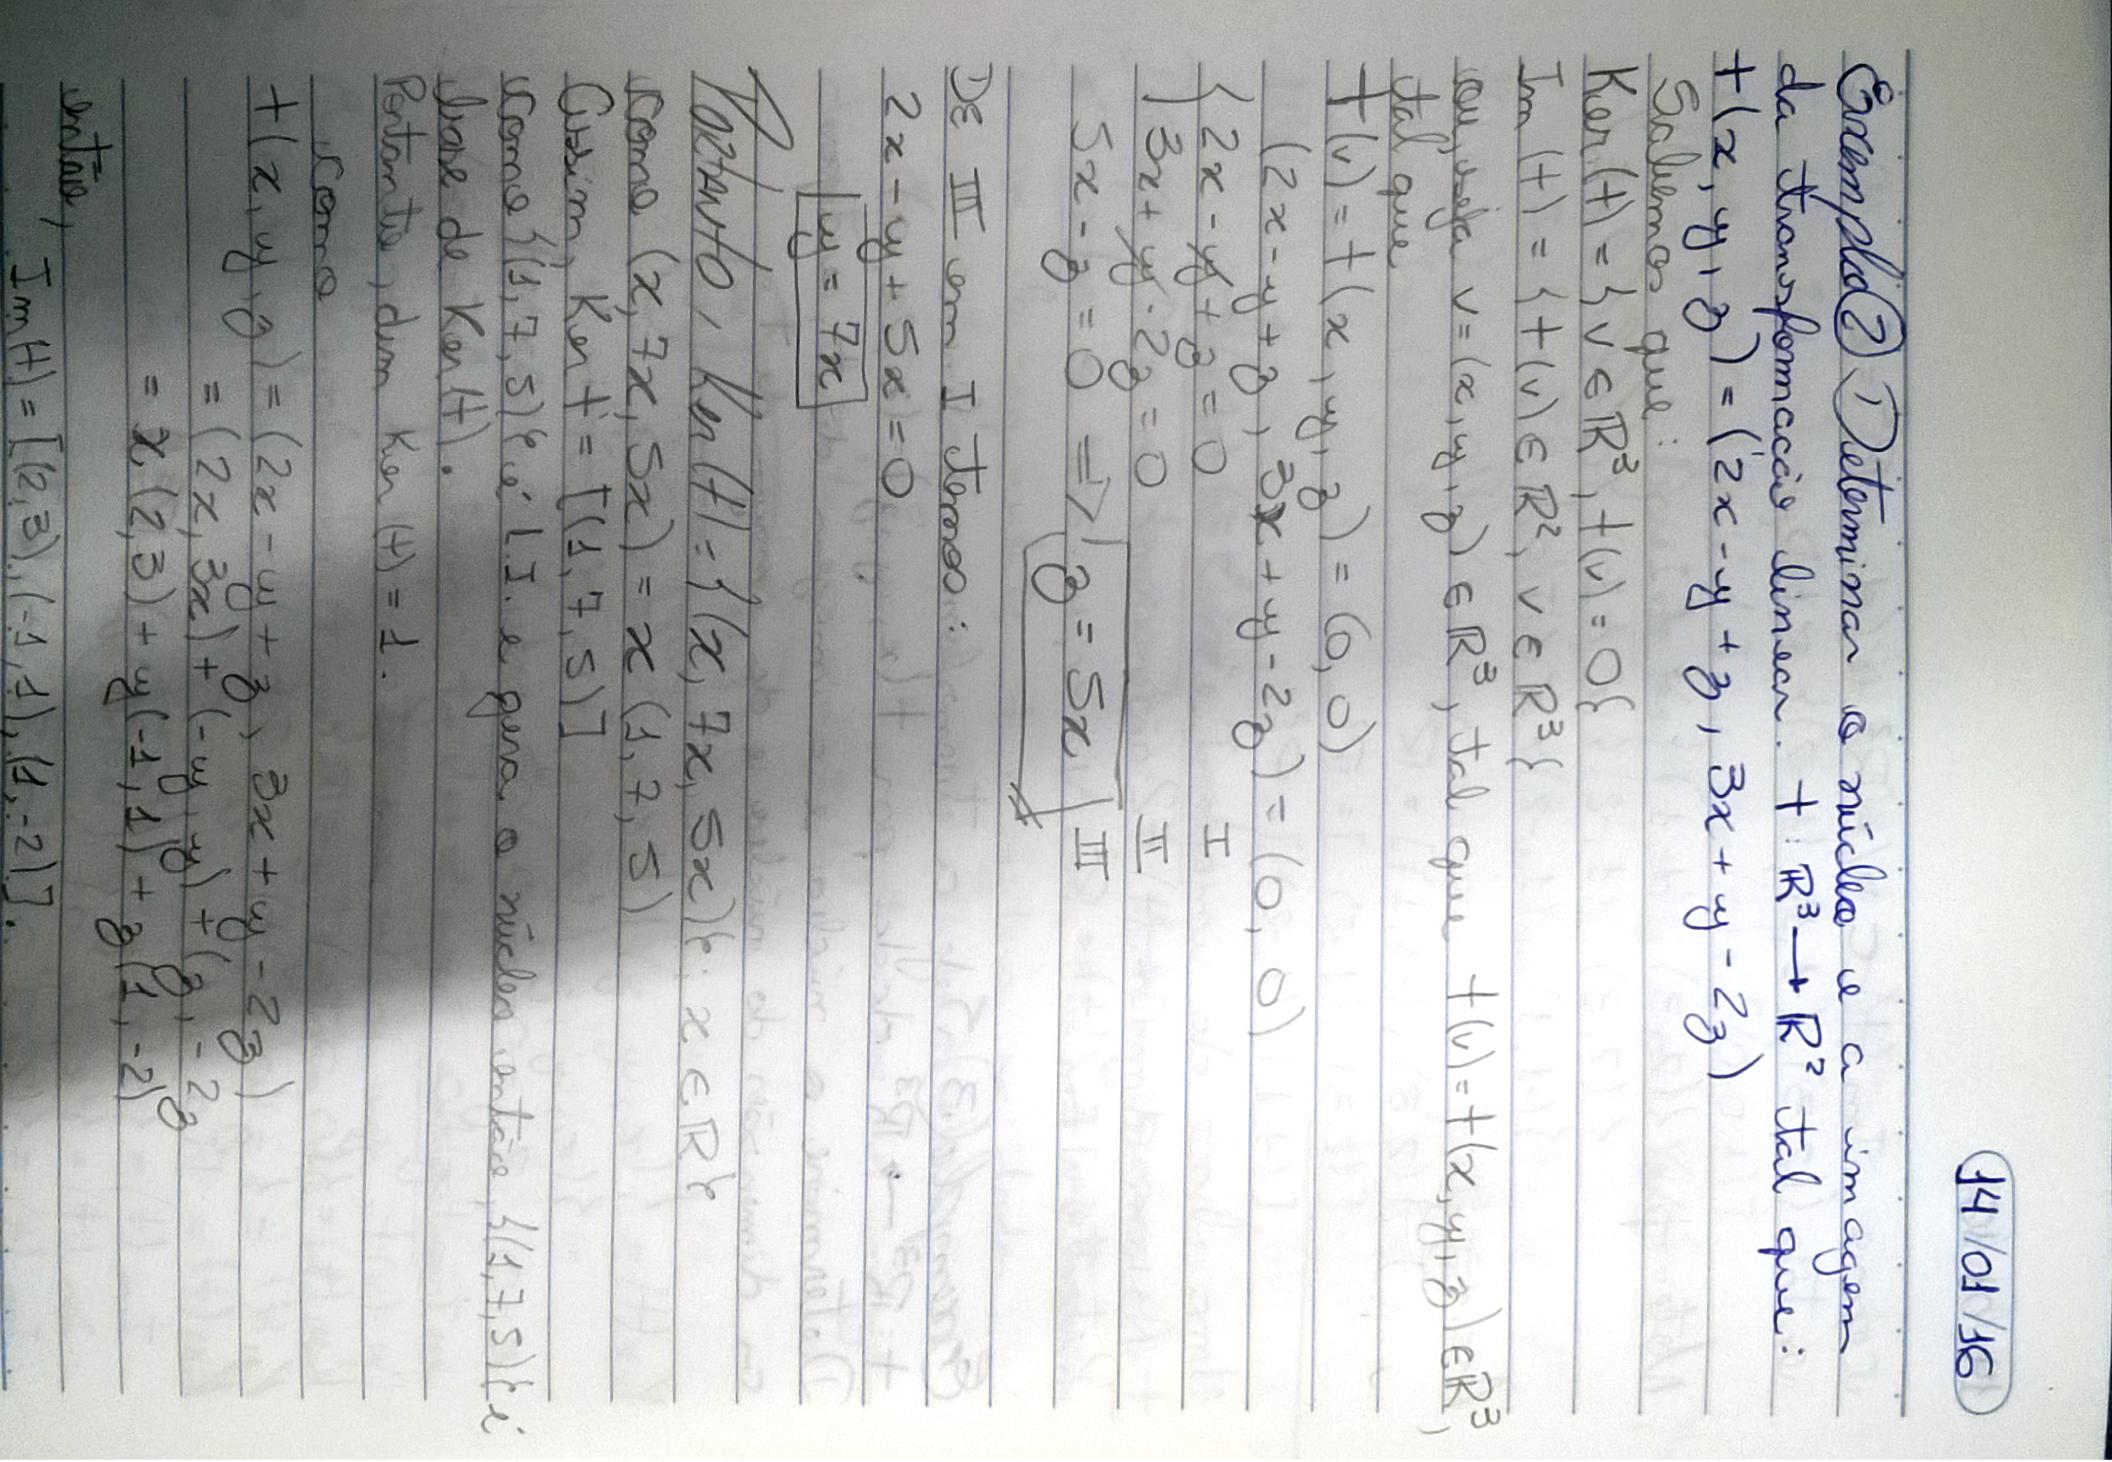 14/01/16
Exemplo ② Determinar o núcleo e a imagem
da transformação linear. t: ℝ³ → ℝ² tal que:
t(x, y, z) = (2x - y + z, 3x + y - 2z)
Sabemos que:
Ker (t) = { v ∈ ℝ³, t(v) = 0 {
Im (t) = { t(v) ∈ ℝ², v ∈ ℝ³ {
ou, seja v = (x, y, z) ∈ ℝ³, tal que t(v) = t(x, y, z) ∈ ℝ³,
tal que
t(v) = t(x, y, z) = (0, 0)
(2x - y + z, 3x + y - 2z) = (0, 0)
{ 2x - y + z = 0 I
3x + y - 2z = 0 II
5x - z = 0 => z = 5x III
DE III em I temos:
2x - y + 5x = 0
y = 7x
Portanto, Ker (t) = { (x, 7x, 5x) } ; x ∈ ℝ }
como (x, 7x, 5x) = x (1, 7, 5)
Assim, Ker t = [(1, 7, 5)]
como {(1, 7, 5)} é L.I. e gera o núcleo então, {(1, 7, 5)} é
base de Ker (t).
Portanto, dim Ker (t) = 1.
como
t(x, y, z) = (2x - y + z, 3x + y - 2z)
= (2x, 3x) + (-y, y) + (z, -2z
= x (2, 3) + y (-1, 1) + z (1, -2)
então,
Im (t) = [(2, 3), (-1, 1), (1, -2)].